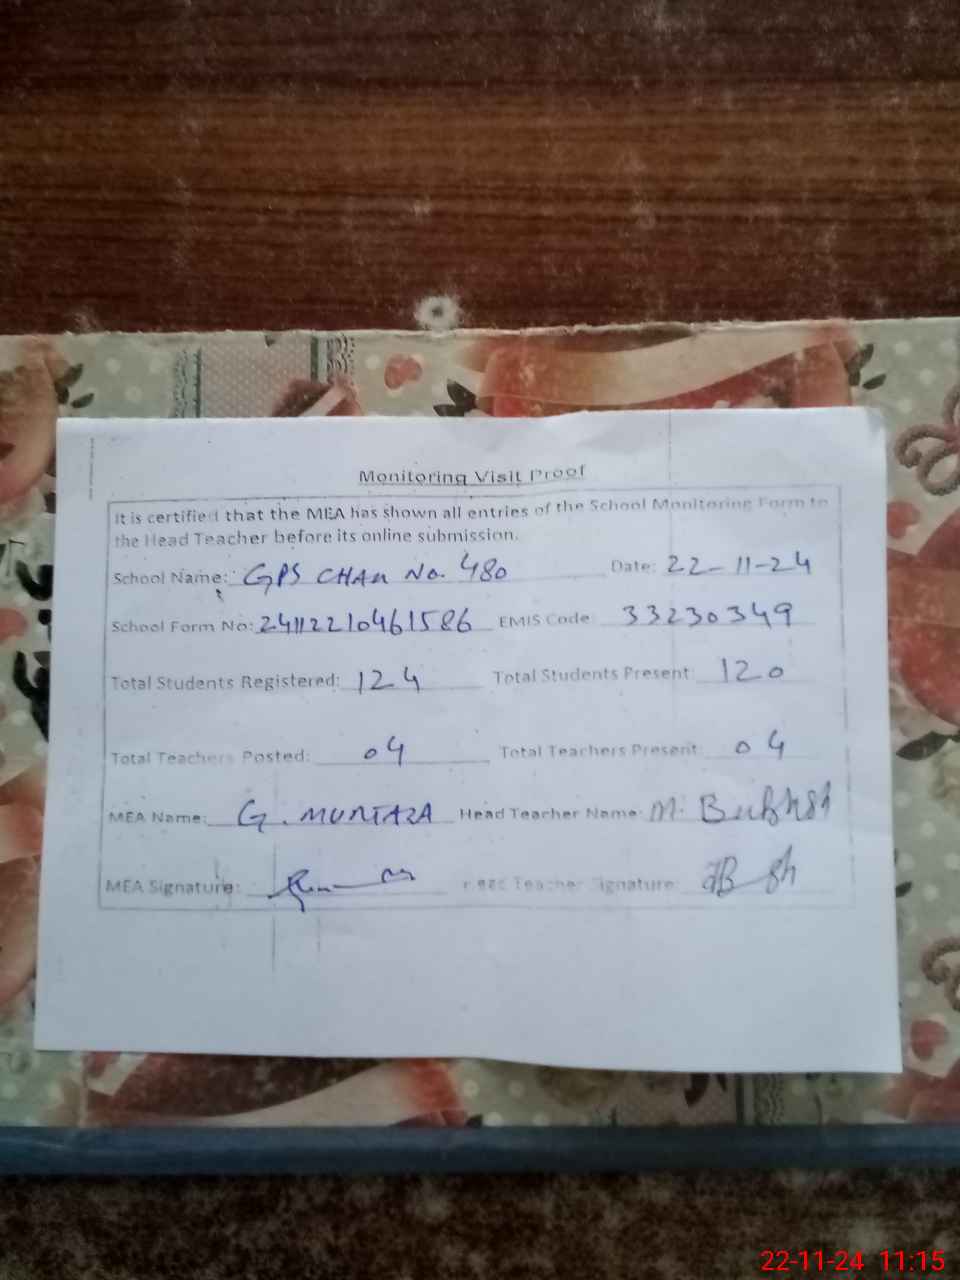 Monitoring Visit Proof
It is certified that the MEA has shown all entries of the School Monitoring Form to
the Head Teacher before its online submission.
School Name: GPS CHAK No. 480 Date: 22-11-24
School Form No: 24112210461586 EMIS Code: 33230349
Total Students Registered: 124 Total Students Present: 120
Total Teachers Posted: 04 Total Teachers Present: 04
MEA Name: G. MURTAZA Head Teacher Name: M.
MEA Signature: Head Teacher Signature:
22-11-24 11:15